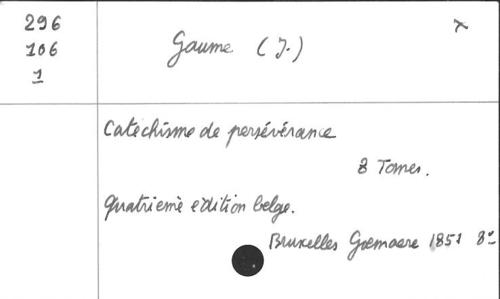 296
106
1
Gaume (J.) x
Catéchisme de persévérance
8 Tomes.
Quatrième edition belge.
Bruxelles Goemaere 1851 8°